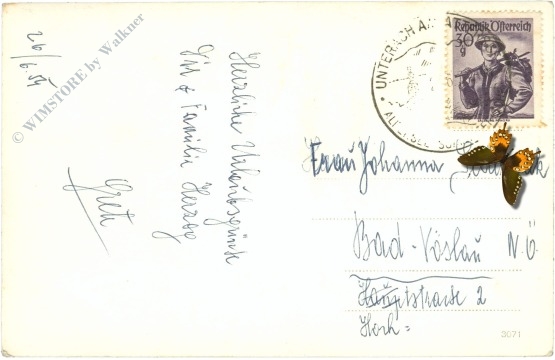 26/6.54
© WIMSTORE by Walkner
Herzliche Urlaubsgrüsse
Dir & Familie Herzog
Gret
UNTERACH AM A
Republik Österreich
30 g
Frau Johanna
Bad-Vöslau N.Ö.
Hauptstrasse 2
Hoch=
3071